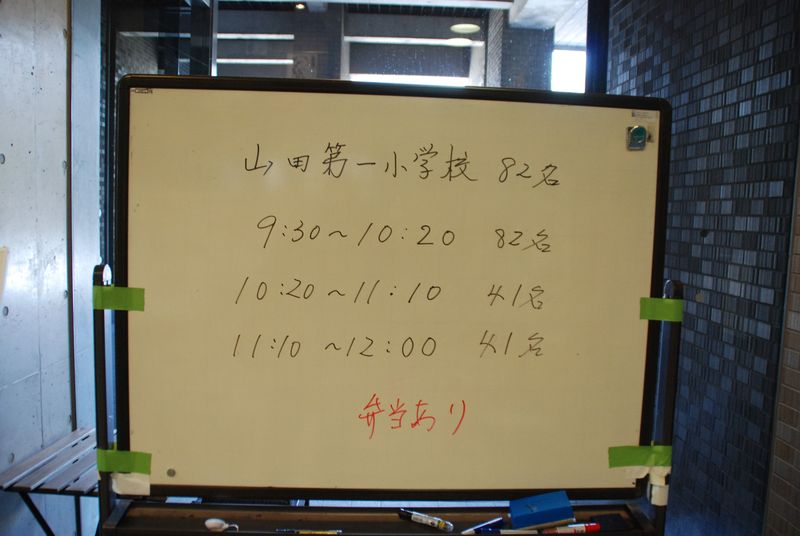 山田第一小学校 82名
9:30～10:20 82名
10:20～11:10 41名
11:10～12:00 41名
弁当あり